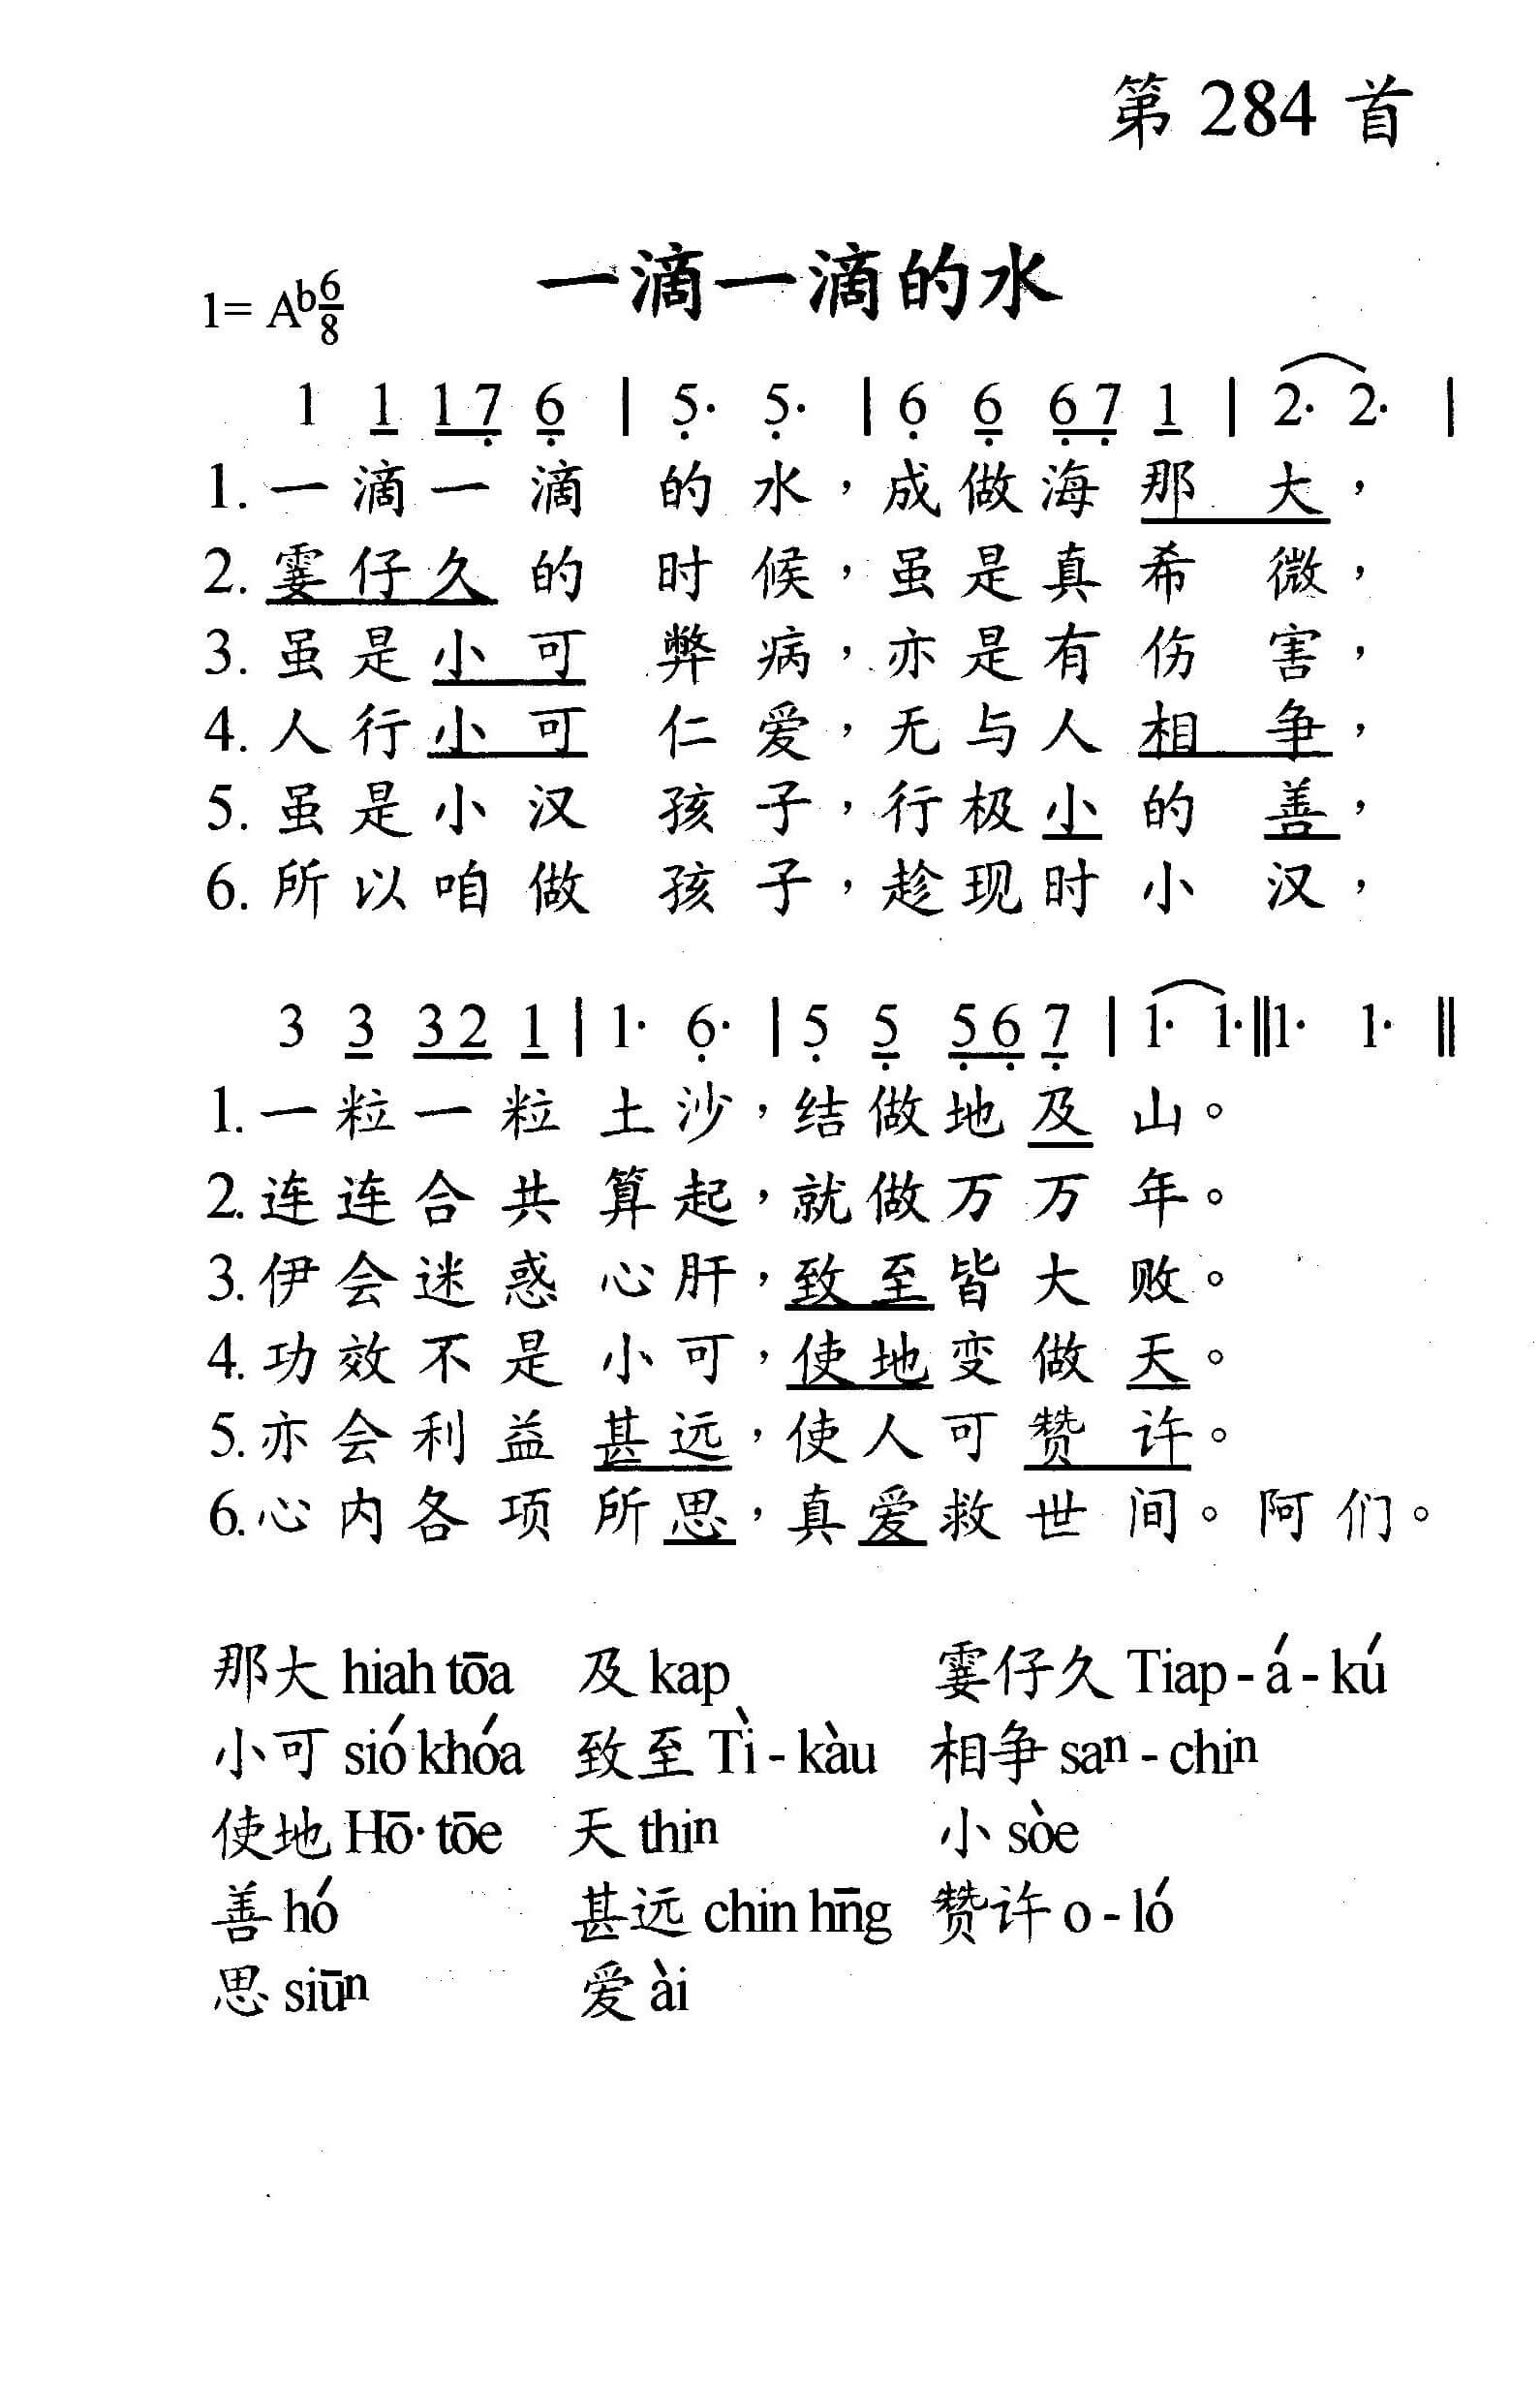 第 284 首
一滴一滴的水
1= Ab 6/8
1 1 1 7 6 | 5· 5· | 6 6 6 7 1 | 2· 2· |
1. 一滴一滴的水，成做海那大，
2. 霎仔久的时候，虽是真希微，
3. 虽是小可弊病，亦是有伤害，
4. 人行小可仁爱，无与人相争，
5. 虽是小汉孩子，行极小的善，
6. 所以咱做孩子，趁现时小汉，
3 3 3 2 1 | 1· 6· | 5 5 5 6 7 | 1· 1· ‖ 1· 1· ‖
1. 一粒一粒土沙，结做地及山。
2. 连连合共算起，就做万万年。
3. 伊会迷惑心肝，致至皆大败。
4. 功效不是小可，使地变做天。
5. 亦会利益甚远，使人可赞许。
6. 心内各项所思，真爱救世间。阿们。
那大 hiah tōa 及 kap 霎仔久 Tiap - á - kú
小可 sió khóa 致至 Tì - kàu 相争 saⁿ - chiⁿ
使地 Hō· tōe 天 thiⁿ 小 sòe
善 hó 甚远 chin hn̄g 赞许 o - ló
思 siūⁿ 爱 ài